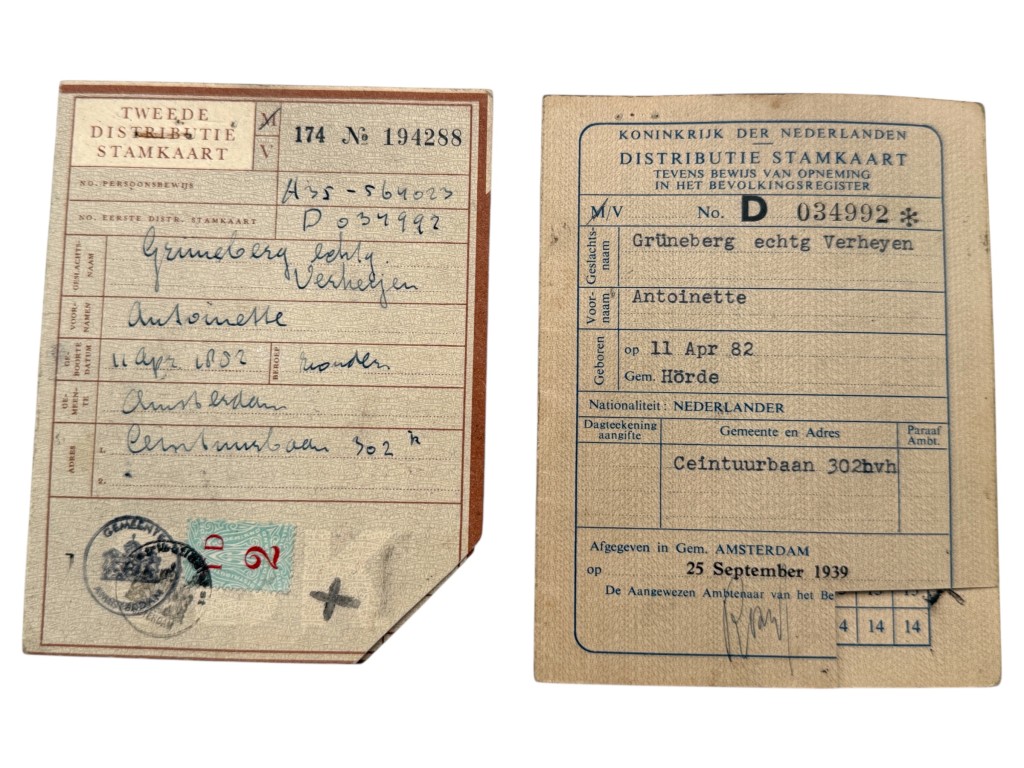 TWEEDE
DISTRIBUTIE
STAMKAART
M
V
174 № 194288
NO. PERSOONSBEWIJS
A35-564023
NO. EERSTE DISTR. STAMKAART
D 034992
GESLACHTS-
NAAM
Gruneberg echtg.
Verheyen
VOOR-
NAMEN
Antoinette
GE-
BOORTE
DATUM
11 Apr. 1882
BEROEP
zonder
GE-
MEEN-
TE
Amsterdam
ADRES
1. Ceintuurbaan 302 h
2.
GEMEENTE
AMSTERDAM
D
2
KONINKRIJK DER NEDERLANDEN
DISTRIBUTIE STAMKAART
TEVENS BEWIJS VAN OPNEMING
IN HET BEVOLKINGSREGISTER
M/V No. D 034992 *
Geslachts-
naam
Grüneberg echtg Verheyen
Voor-
naam
Antoinette
Geboren
op 11 Apr 82
Gem. Hörde
Nationaliteit: NEDERLANDER
Dagteekening
aangifte
Gemeente en Adres
Paraaf
Ambt.
Ceintuurbaan 302hvh
Afgegeven in Gem. AMSTERDAM
op 25 September 1939
De Aangewezen Ambtenaar van het Be
4 14 14